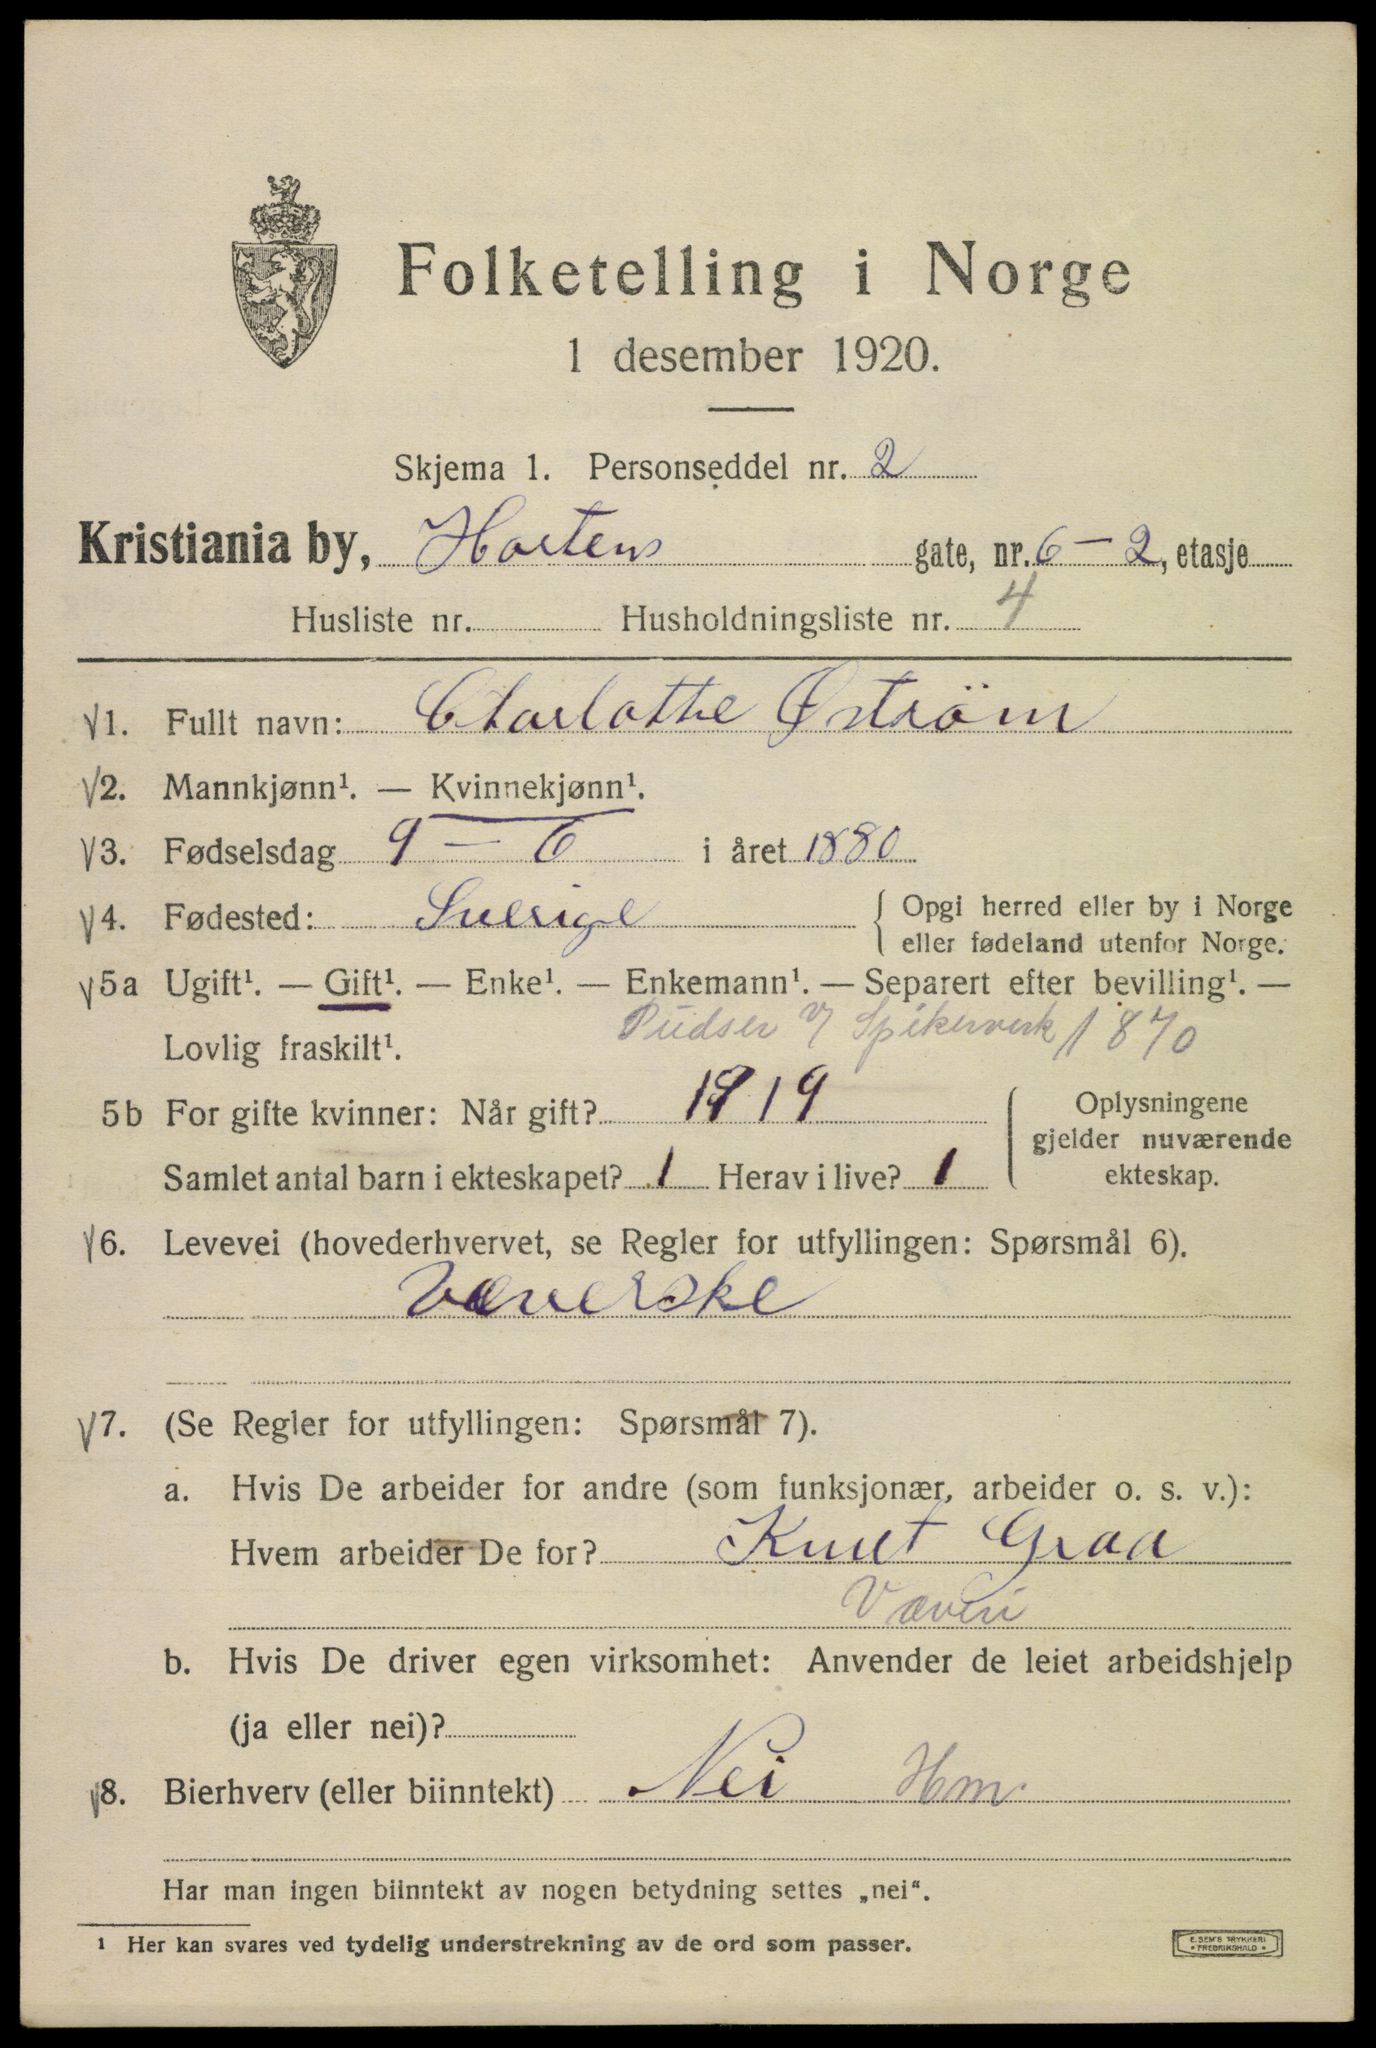 Folketelling i Norge
1 desember 1920.
Skjema 1. Personseddel nr. 2
Kristiania by, Hortens gate, nr. 6-2, etasje
Husliste nr. Husholdningsliste nr. 4
1. Fullt navn: Charlotte Østrøm
2. Mannkjønn¹. — Kvinnekjønn¹.
3. Fødselsdag 9 - 6 i året 1880
4. Fødested: Sverige { Opgi herred eller by i Norge
eller fødeland utenfor Norge.
5a Ugift¹. — Gift¹. — Enke¹. — Enkemann¹. — Separert efter bevilling¹. —
Pudser v/ Spikerverk / 870
Lovlig fraskilt¹.
5b For gifte kvinner: Når gift? 1919 { Oplysningene
gjelder nuværende
ekteskap.
Samlet antal barn i ekteskapet? 1 Herav i live? 1
6. Levevei (hovederhvervet, se Regler for utfyllingen: Spørsmål 6).
Væverske
7. (Se Regler for utfyllingen: Spørsmål 7).
a. Hvis De arbeider for andre (som funksjonær, arbeider o. s. v.):
Hvem arbeider De for? Knut Graa
Væveri
b. Hvis De driver egen virksomhet: Anvender de leiet arbeidshjelp
(ja eller nei)?
8. Bierhverv (eller biinntekt) Nei Hm
Har man ingen biinntekt av nogen betydning settes „nei".
¹ Her kan svares ved tydelig understrekning av de ord som passer.
E. SEM'S TRYKKERI
FREDRIKSHALD